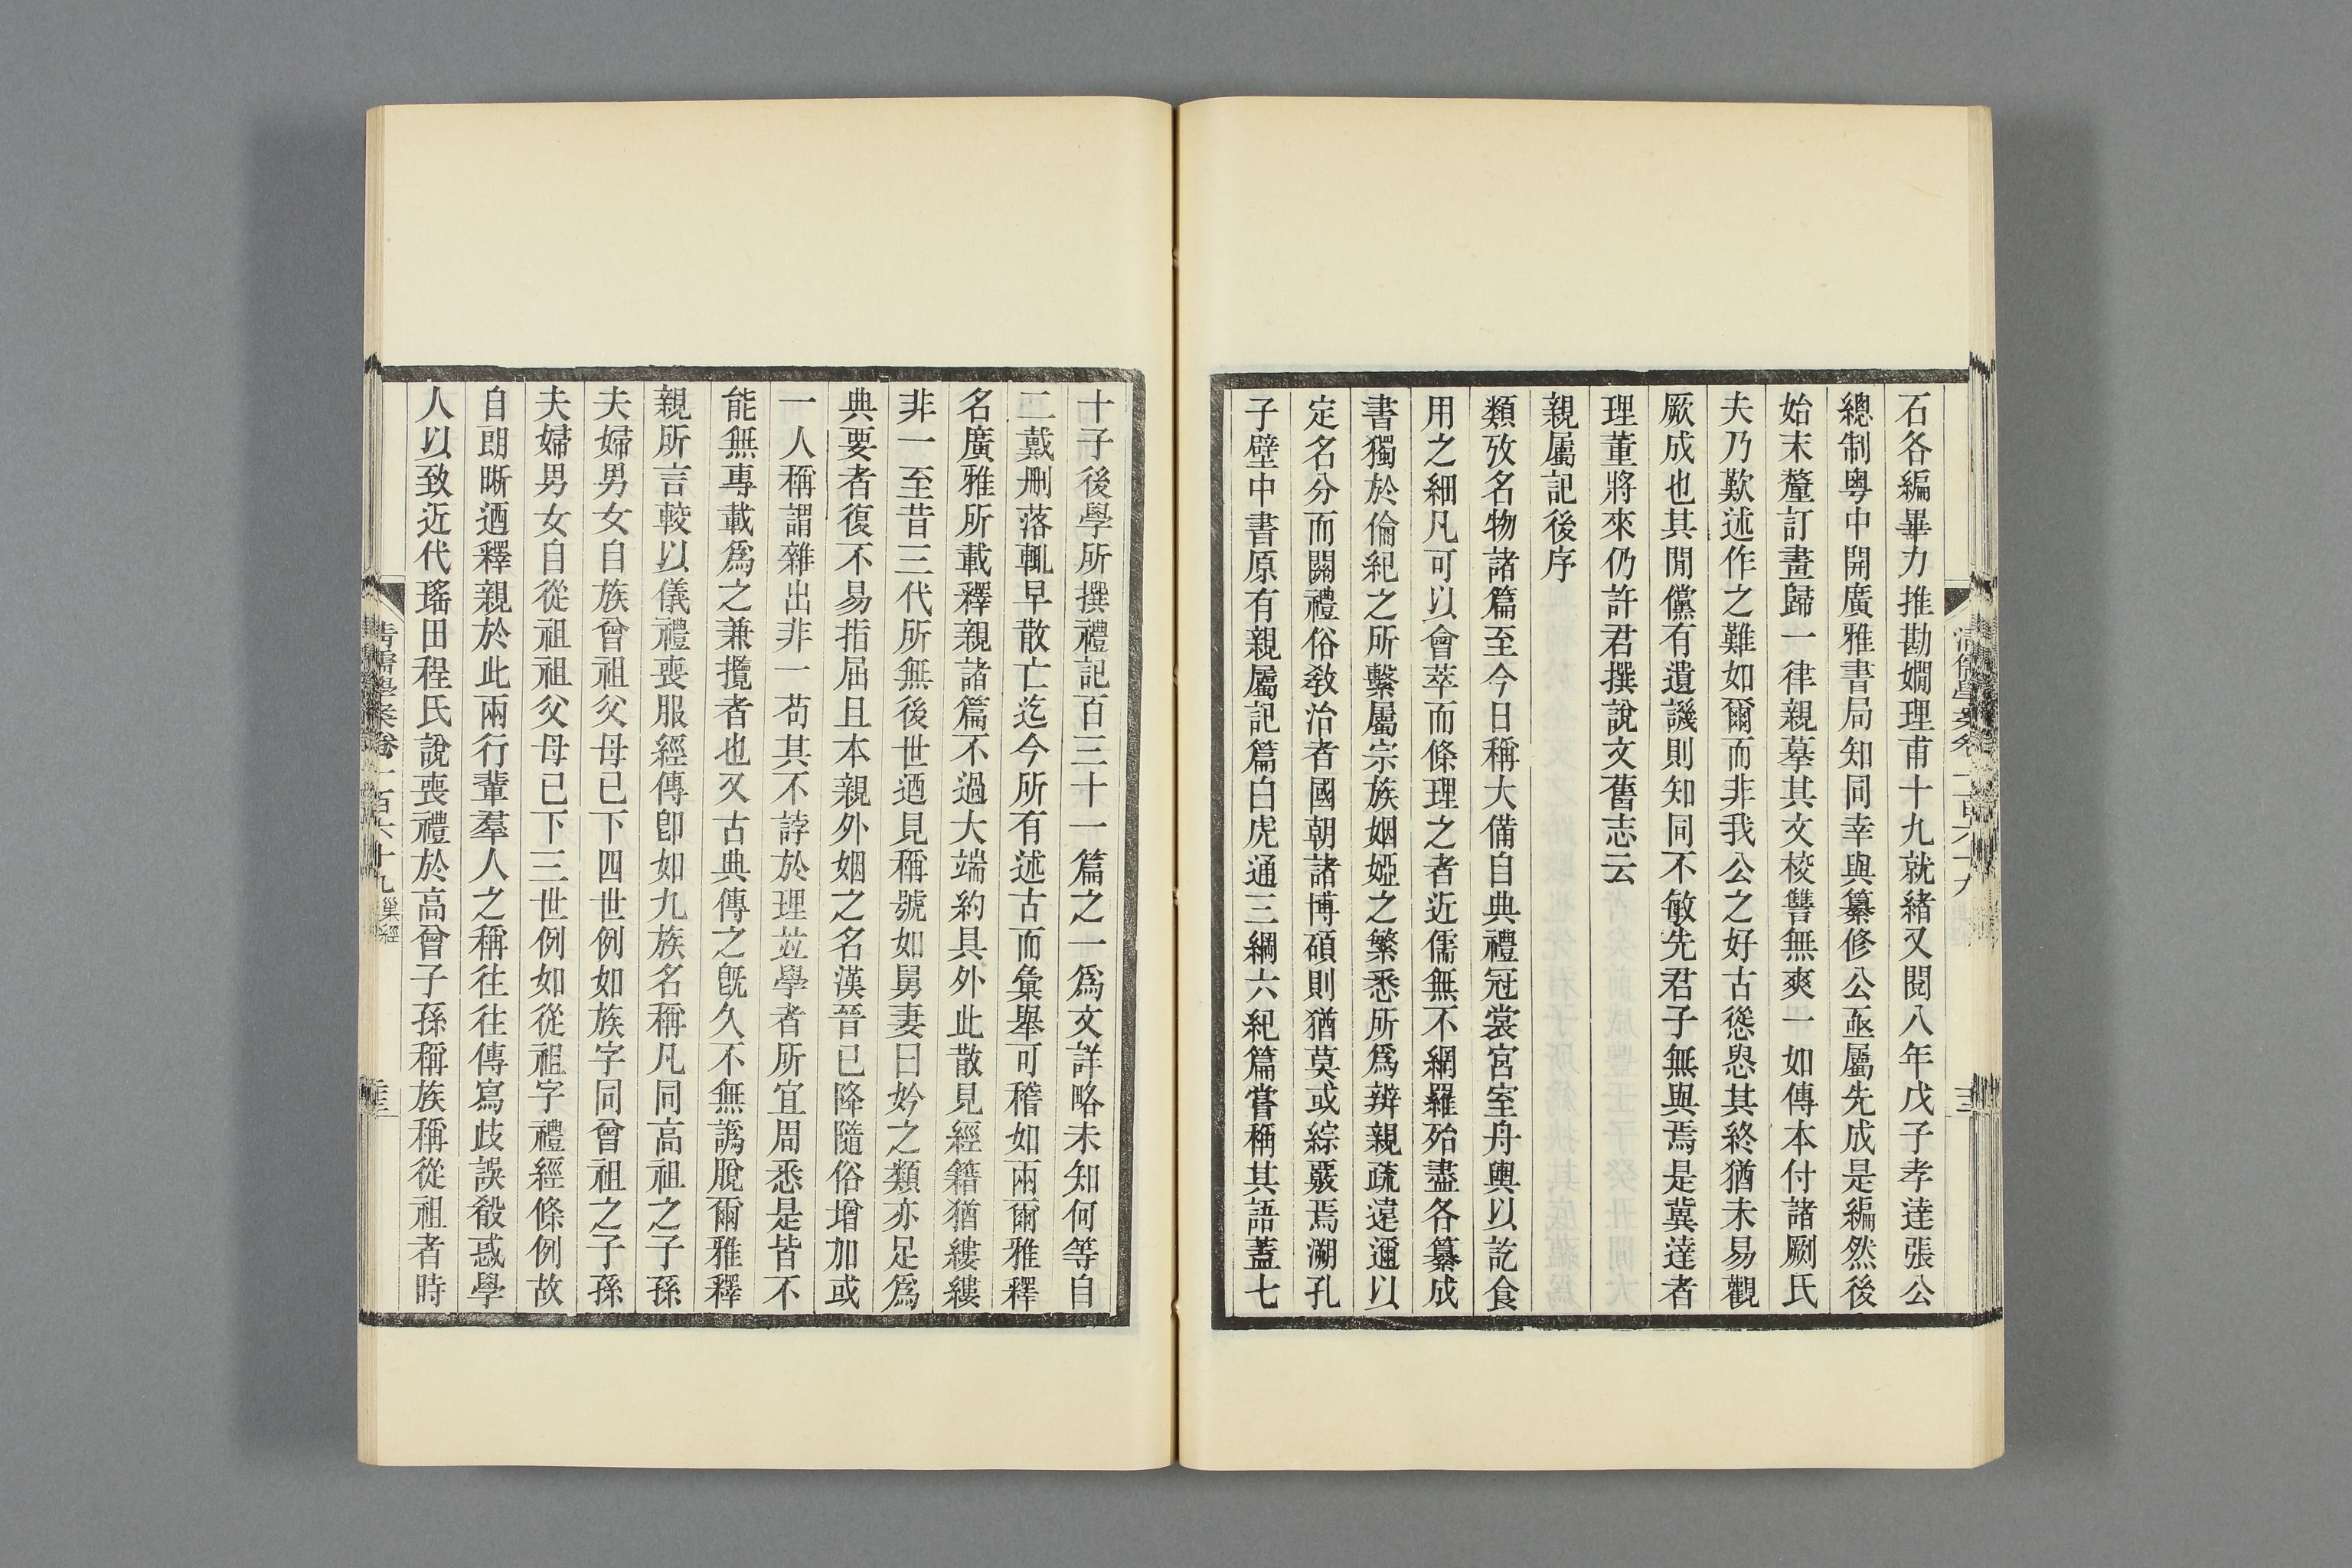 石各編畢力推勘嫺理甫十九就緒又閱八年戊子孝達張公
總制粵中開廣雅書局知同幸與纂修公亟屬先成是編然後
始末釐訂畫歸一律親摹其文校讐無爽一如傳本付諸剞氏
夫乃歎述作之難如爾而非我公之好古慫恿其終猶未易觀
厥成也其閒儻有遺譏則知同不敏先君子無與焉是冀達者
理董將來仍許君撰說文舊志云
親屬記後序
類攷名物諸篇至今日稱大備自典禮冠裳宮室舟輿以訖食
用之細凡可以會萃而條理之者近儒無不網羅殆盡各纂成
書獨於倫紀之所繫屬宗族姻婭之繁悉所爲辨親疏違邇以
定名分而關禮俗敎治者國朝諸博碩則猶莫或綜覈焉溯孔
子壁中書原有親屬記篇白虎通三綱六紀篇嘗稱其語蓋七
清儒學案卷一百六十九
十三
十子後學所撰禮記百三十一篇之一爲文詳略未知何等自
二戴刪落輒早散亡迄今所有述古而彙舉可稽如兩爾雅釋
名廣雅所載釋親諸篇不過大端約具外此散見經籍猶縷縷
非一至昔三代所無後世迺見稱號如舅妻曰妗之類亦足爲
典要者復不易指屈且本親外姻之名漢晉已降隨俗增加或
一人稱謂雜出非一苟其不誖於理竝學者所宜周悉是皆不
能無專載爲之兼攬者也又古典傳之旣久不無譌脫爾雅釋
親所言較以儀禮喪服經傳卽如九族名稱凡同高祖之子孫
夫婦男女自族曾祖父母已下四世例如族字同曾祖之子孫
夫婦男女自從祖祖父母已下三世例如從祖字禮經條例故
自朗晰迺釋親於此兩行輩羣人之稱往往傳寫歧誤殽惑學
人以致近代瑤田程氏說喪禮於高曾子孫稱族稱從祖者時
清儒學案卷一百六十九 巢經